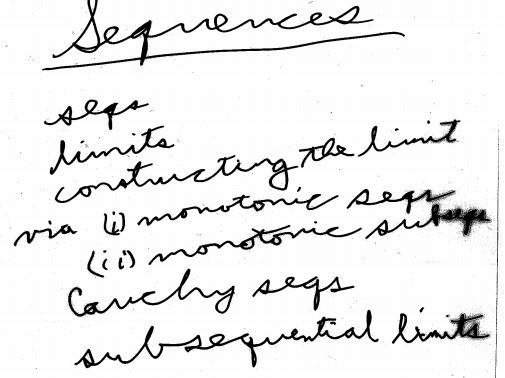 Sequences
seqs
limits
constructing the limit
via (i) monotonic seqs
(ii) monotonic subseqs
Cauchy seqs
subsequential limits